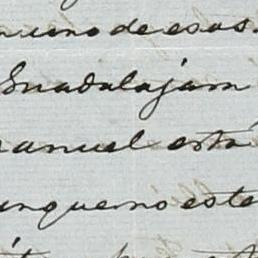 uno de esos
Guadalajara
anuel está
unque no este